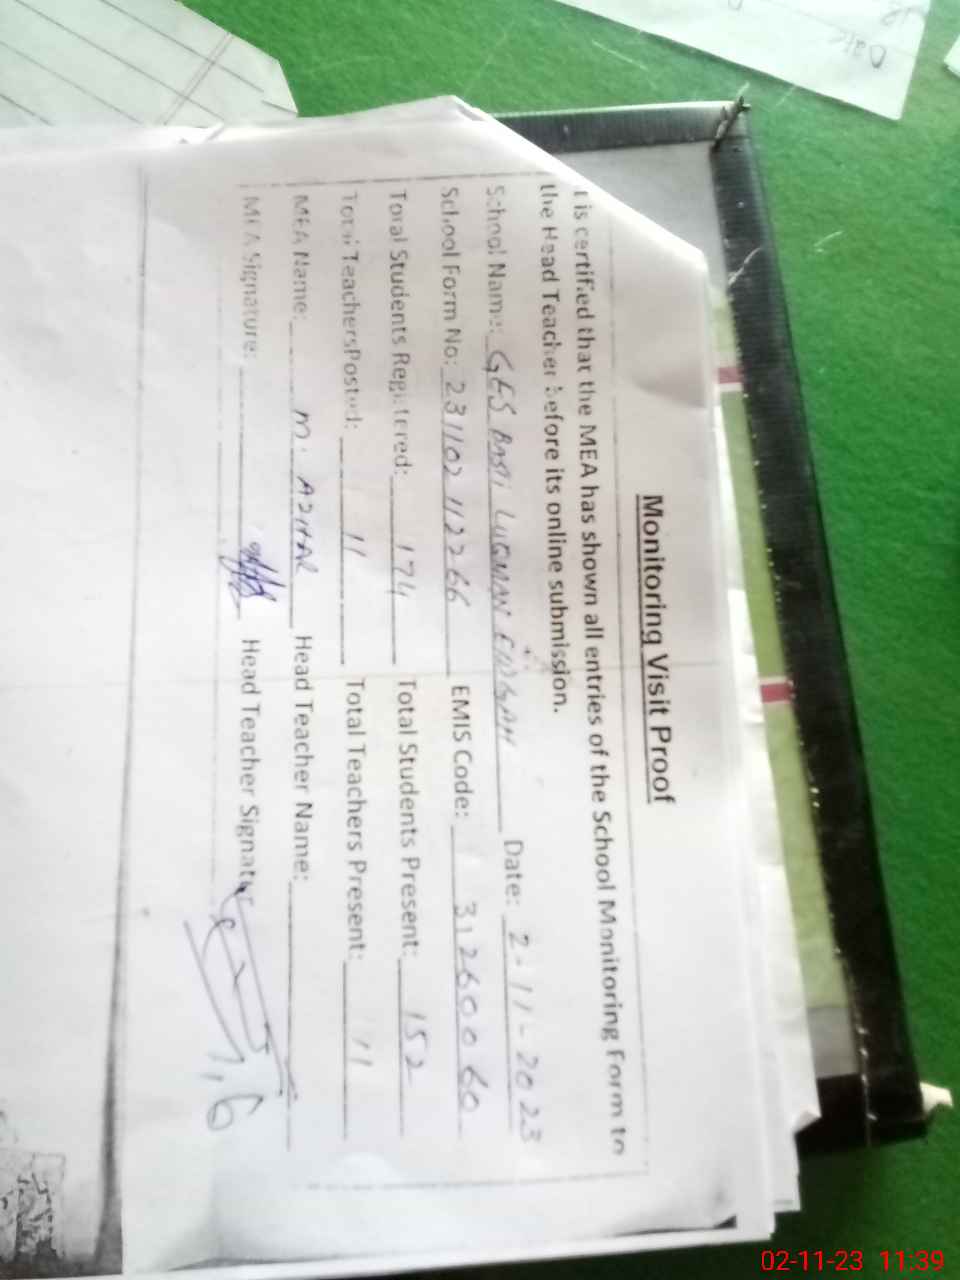 Monitoring Visit Proof
t is certified that the MEA has shown all entries of the School Monitoring Form to
the Head Teacher before its online submission.
School Name: GES BASTI LUQMAN Date: 2-11-2023
School Form No: 231102112266 EMIS Code: 31260060
Total Students Registered: 174 Total Students Present: 152
Total TeachersPosted: 11 Total Teachers Present: 11
MEA Name: M. AZHAR Head Teacher Name:
MEA Signature: Head Teacher Signatur
Date
02-11-23 11:39